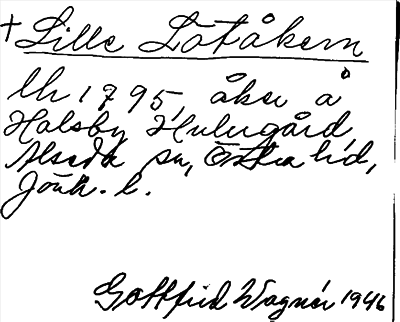 + Lille Lotåkern
Uh 1795, åker å
Holsby Hulugård,
Alseda sn, Östra hd,
Jönk. l.
Gottfrid Wagnér 1946